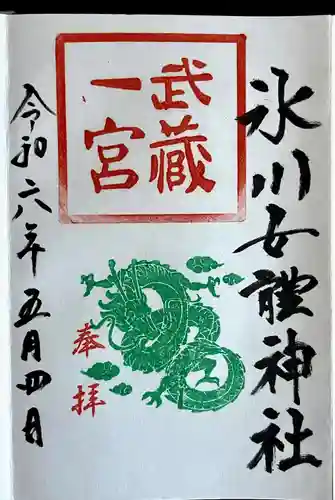 氷川女體神社
武蔵
一宮
奉拝
令和六年五月四日